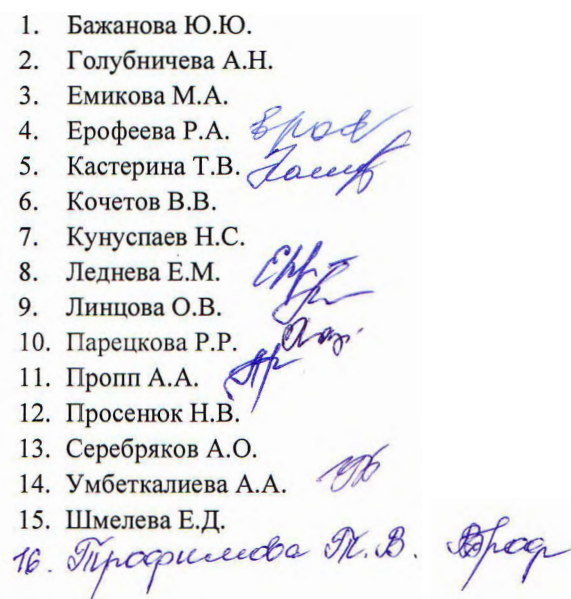 1. Бажанова Ю.Ю.
2. Голубничева А.Н.
3. Емикова М.А.
4. Ерофеева Р.А.
5. Кастерина Т.В.
6. Кочетов В.В.
7. Кунуспаев Н.С.
8. Леднева Е.М.
9. Линцова О.В.
10. Парецкова Р.Р.
11. Пропп А.А.
12. Просенюк Н.В.
13. Серебряков А.О.
14. Умбеткалиева А.А.
15. Шмелева Е.Д.
16. Трофимова Т.В.